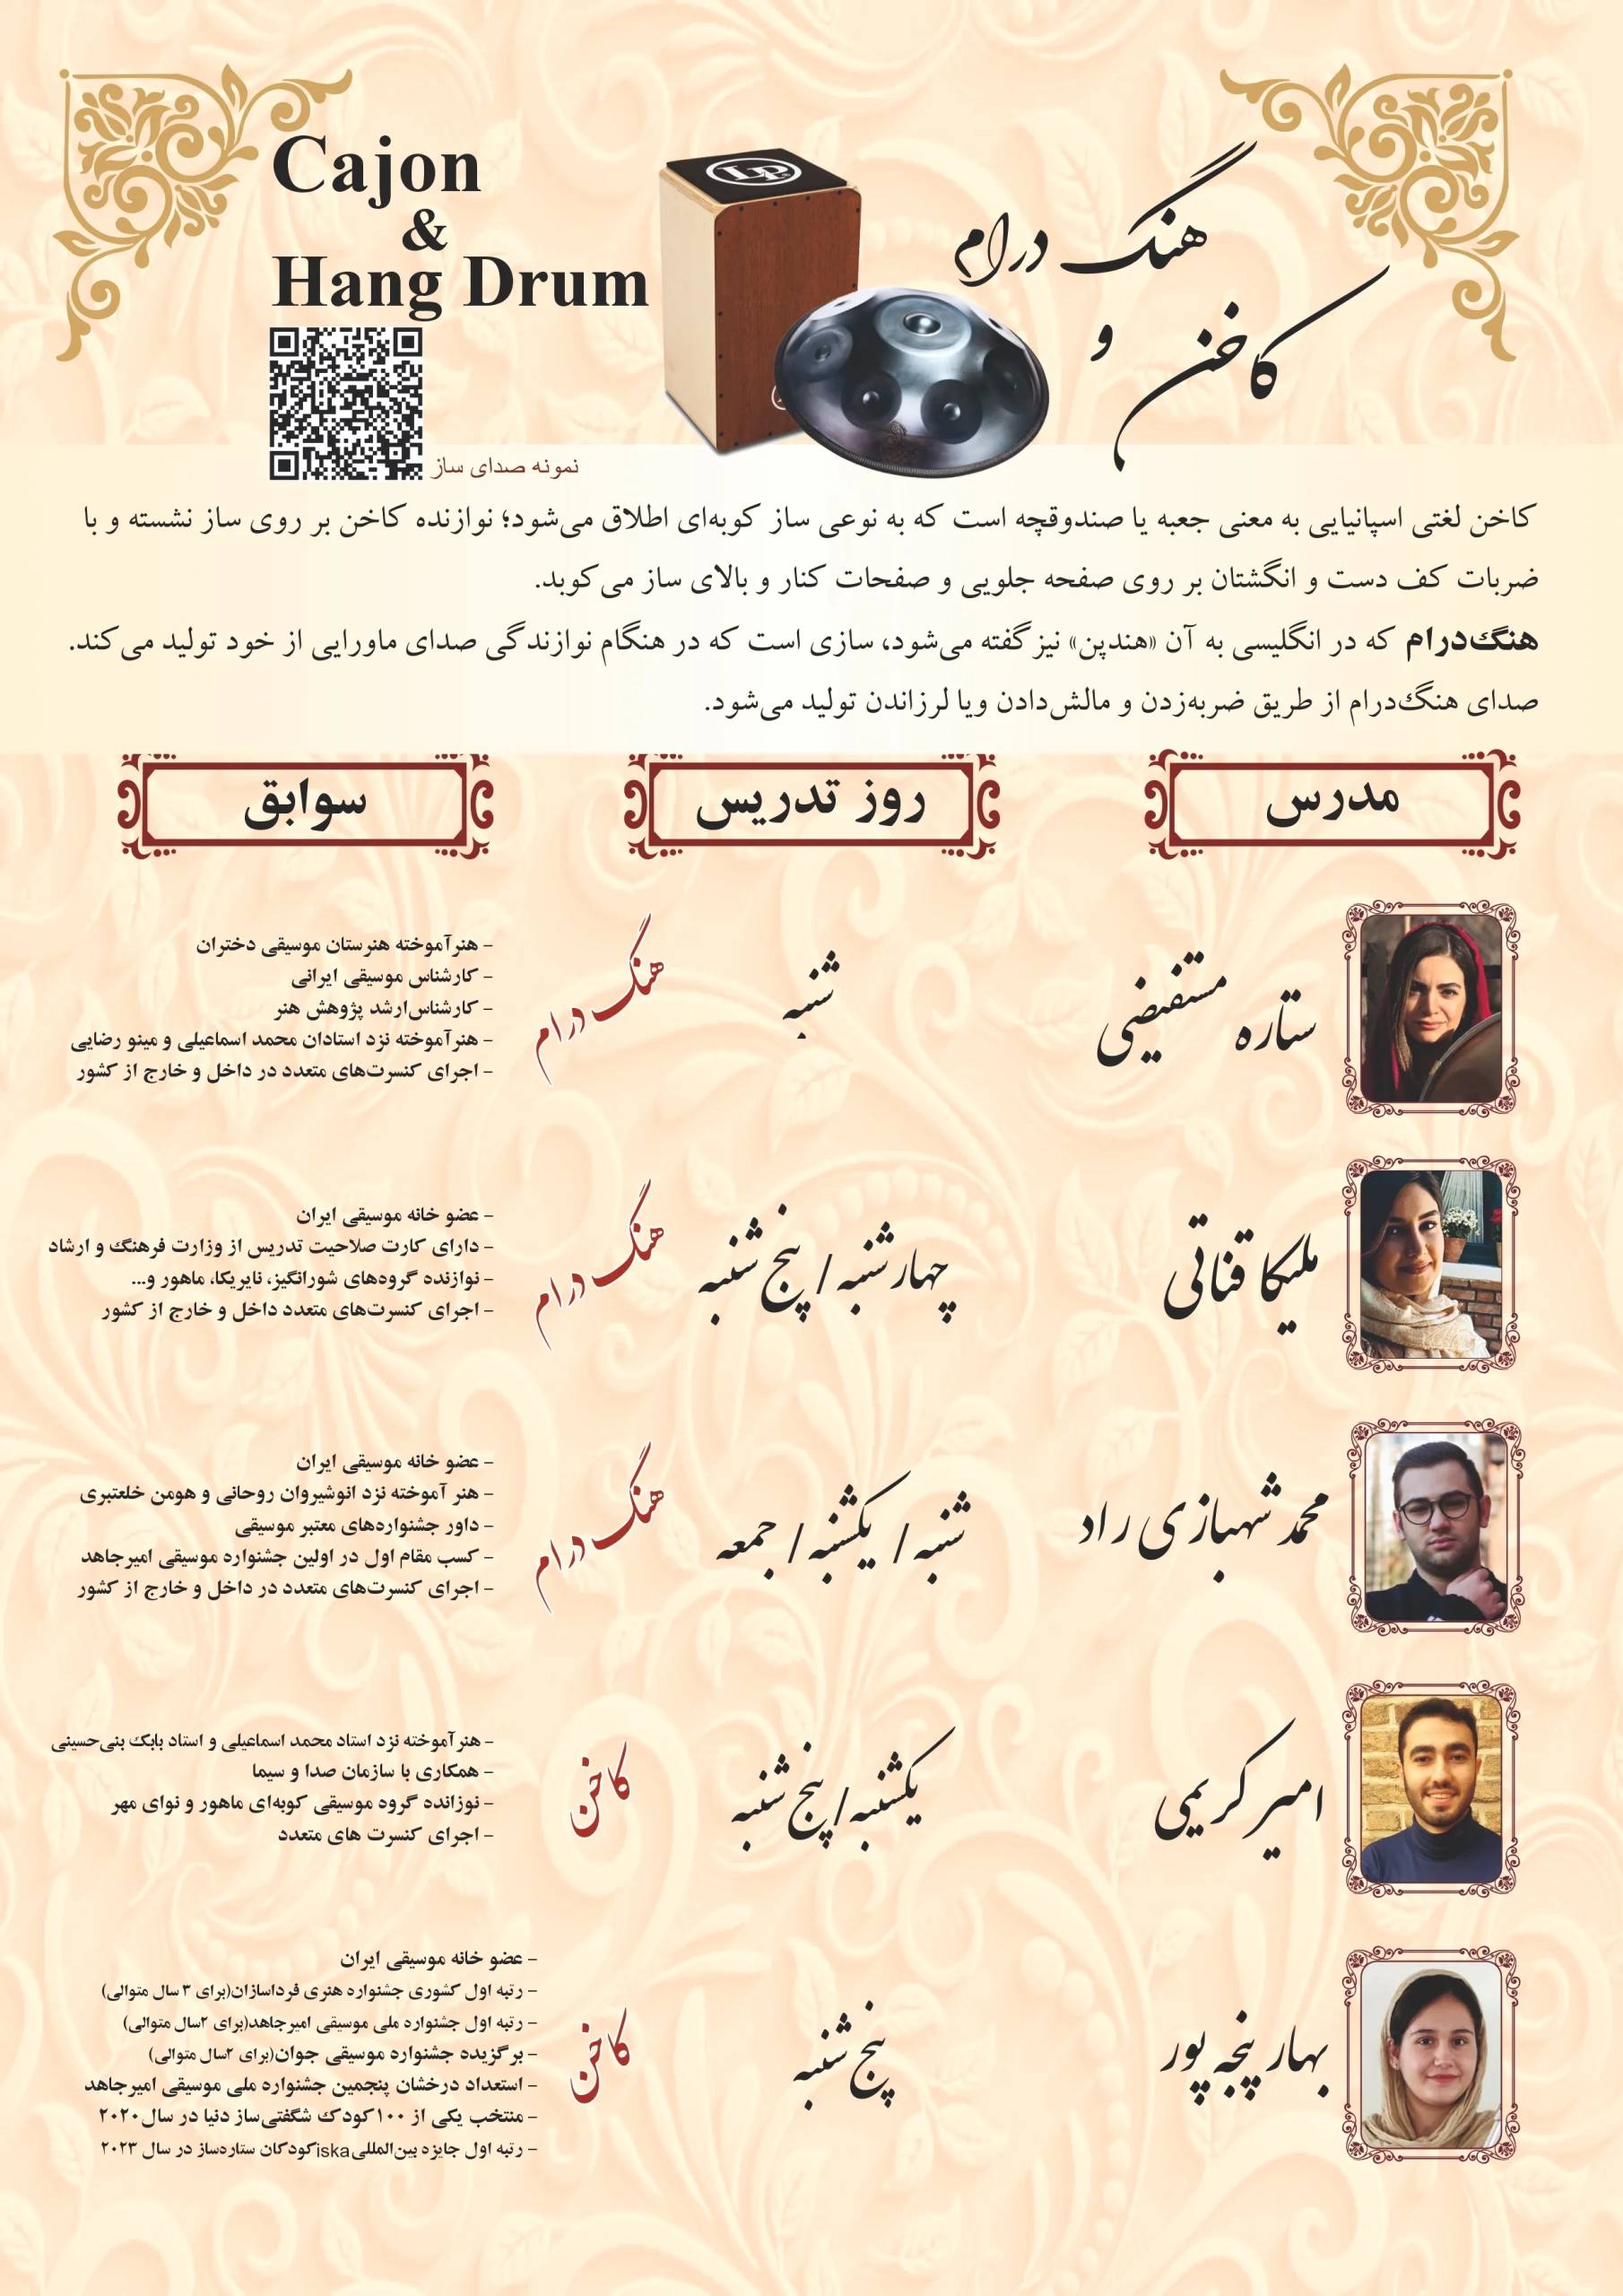 Cajon
&
Hang Drum
هنگ درام
و
کاخن
LP
نمونه صدای ساز
کاخن لغتی اسپانیایی به معنی جعبه یا صندوقچه است که به نوعی ساز کوبه‌ای اطلاق می‌شود؛ نوازنده کاخن بر روی ساز نشسته و با
ضربات کف دست و انگشتان بر روی صفحه جلویی و صفحات کنار و بالای ساز می‌کوبد.
هنگ‌درام که در انگلیسی به آن «هندپن» نیز گفته می‌شود، سازی است که در هنگام نوازندگی صدای ماورایی از خود تولید می‌کند.
صدای هنگ‌درام از طریق ضربه‌زدن و مالش‌دادن ویا لرزاندن تولید می‌شود.
مدرس
روز تدریس
سوابق
ستاره مستفیضی
شنبه
هنگ درام
- هنرآموخته هنرستان موسیقی دختران
- کارشناس موسیقی ایرانی
- کارشناس‌ارشد پژوهش هنر
- هنرآموخته نزد استادان محمد اسماعیلی و مینو رضایی
- اجرای کنسرت‌های متعدد در داخل و خارج از کشور
ملیکا قناتی
چهارشنبه / پنج شنبه
هنگ درام
- عضو خانه موسیقی ایران
- دارای کارت صلاحیت تدریس از وزارت فرهنگ و ارشاد
- نوازنده گروه‌های شورانگیز، نایریکا، ماهور و...
- اجرای کنسرت‌های متعدد داخل و خارج از کشور
محمد شهبازی راد
شنبه / یکشنبه / جمعه
هنگ درام
- عضو خانه موسیقی ایران
- هنر آموخته نزد انوشیروان روحانی و هومن خلعتبری
- داور جشنواره‌های معتبر موسیقی
- کسب مقام اول در اولین جشنواره موسیقی امیرجاهد
- اجرای کنسرت‌های متعدد در داخل و خارج از کشور
امیر کریمی
یکشنبه / پنج شنبه
کاخن
- هنرآموخته نزد استاد محمد اسماعیلی و استاد بابک بنی‌حسینی
- همکاری با سازمان صدا و سیما
- نوزانده گروه موسیقی کوبه‌ای ماهور و نوای مهر
- اجرای کنسرت های متعدد
بهار پنجه پور
پنج شنبه
کاخن
- عضو خانه موسیقی ایران
- رتبه اول کشوری جشنواره هنری فرداسازان(برای ۳ سال متوالی)
- رتبه اول جشنواره ملی موسیقی امیرجاهد(برای ۲سال متوالی)
- برگزیده جشنواره موسیقی جوان(برای ۲سال متوالی)
- استعداد درخشان پنجمین جشنواره ملی موسیقی امیرجاهد
- منتخب یکی از ۱۰۰کودک شگفتی‌ساز دنیا در سال۲۰۲۰
- رتبه اول جایزه بین‌المللیiskaکودکان ستاره‌ساز در سال ۲۰۲۳